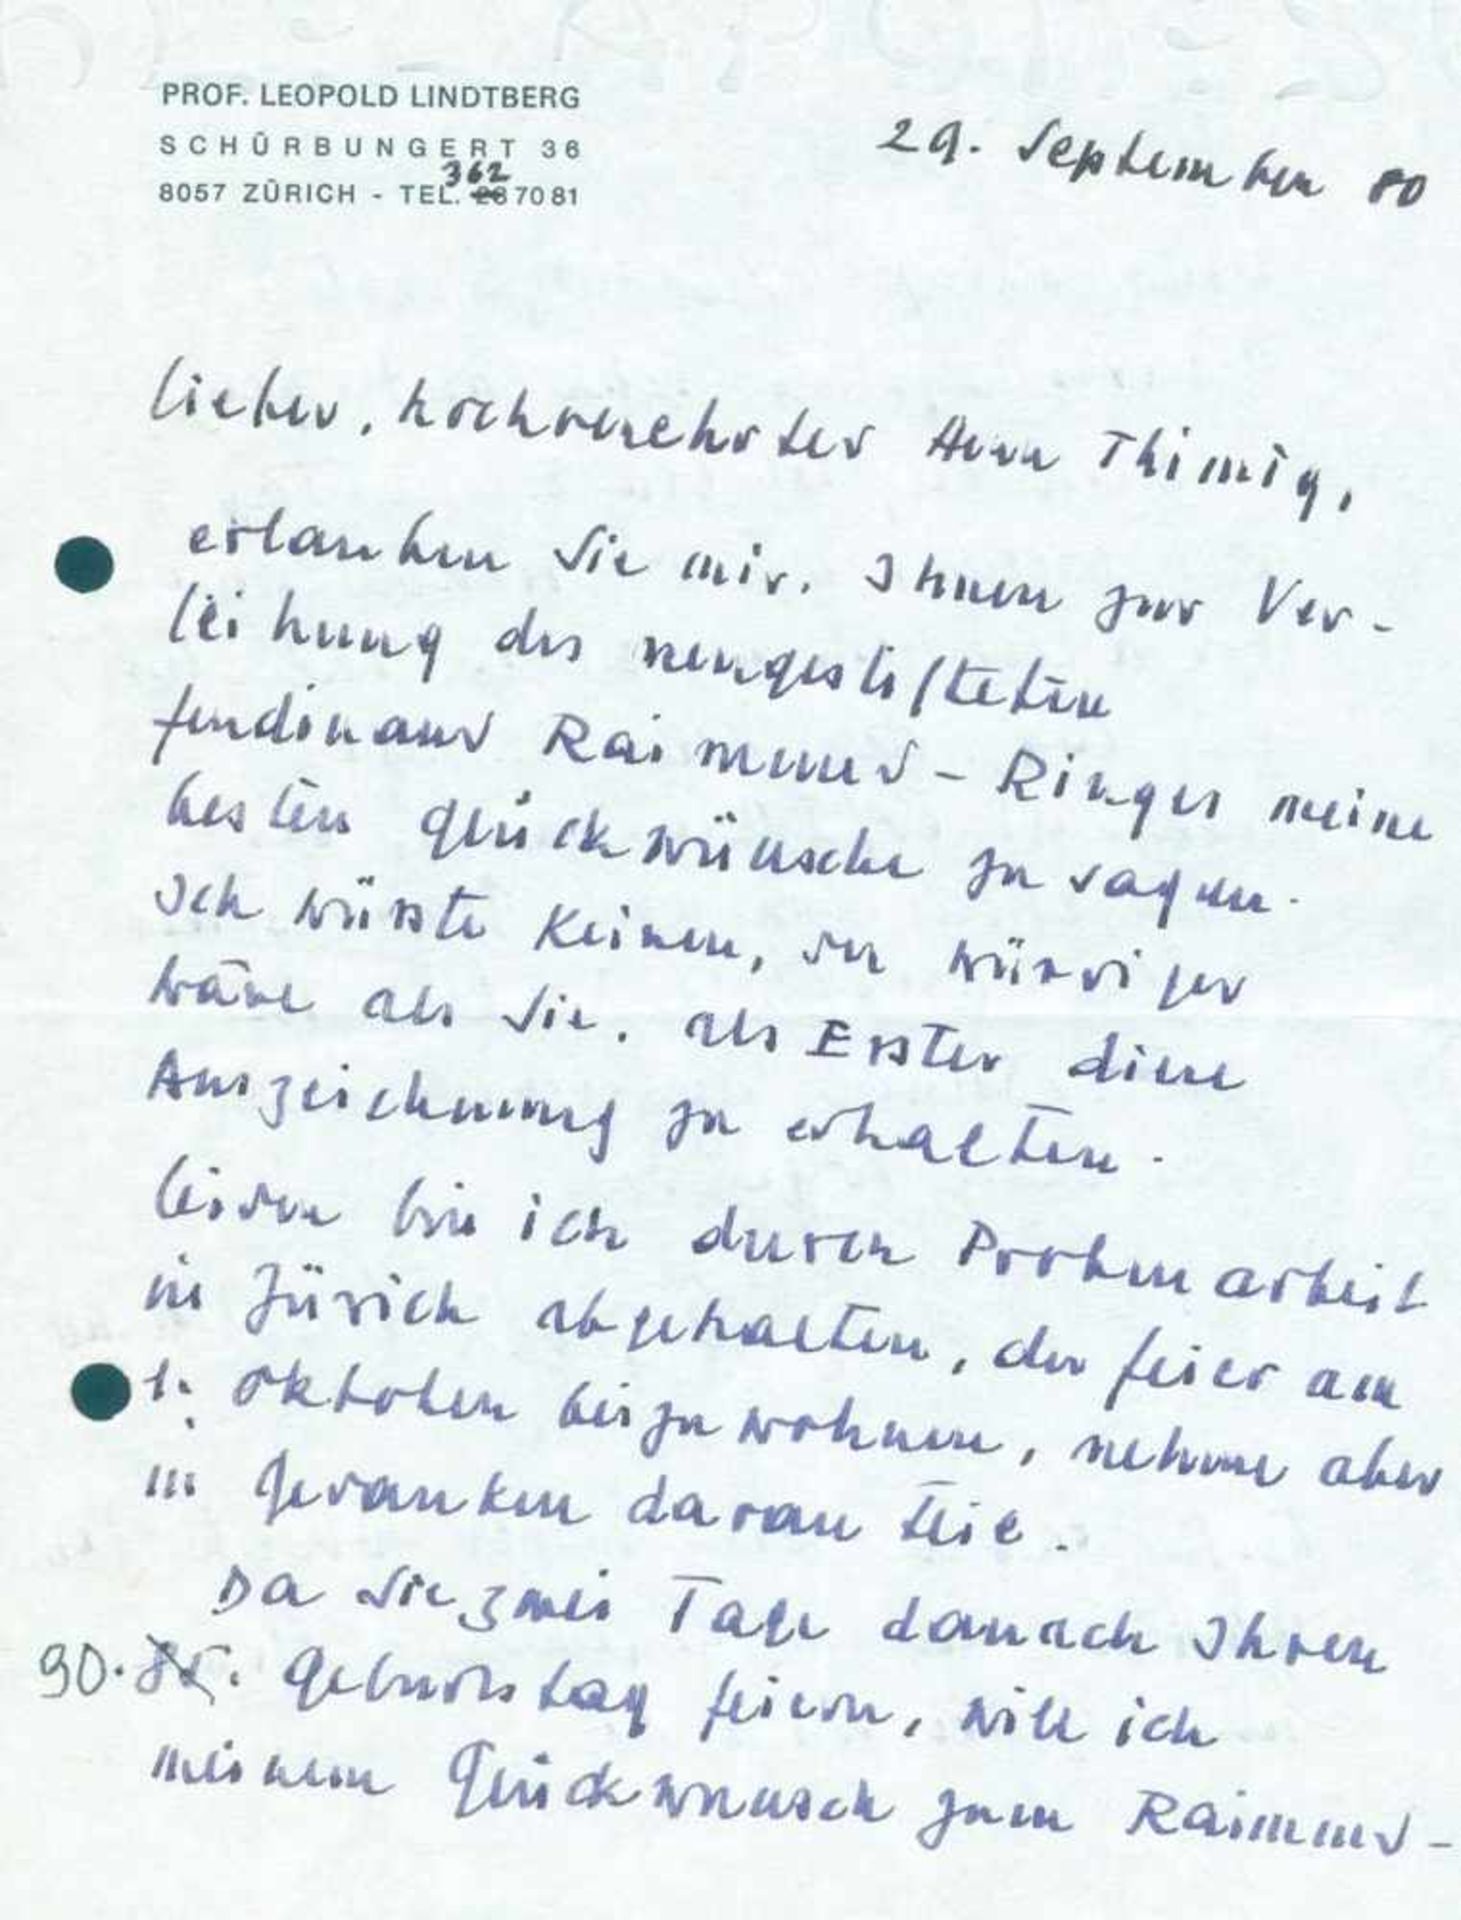 PROF. LEOPOLD LINDTBERG
SCHÜRBUNGERT 36
362
8057 ZÜRICH - TEL. 28 70 81
29. September 80
Lieber, hochverehrter Herr Thimig,
erlauben Sie mir, Ihnen zur Ver-
leihung des neugestifteten
Ferdinand Raimund-Ringes meine
besten Glückwünsche zu sagen.
Ich wüsste Keinen, der würdiger
wäre als Sie, als Erster diese
Auszeichnung zu erhalten.
Leider bin ich durch Probenarbeit
in Zürich abgehalten, der Feier am
1. Oktober beizuwohnen, nehme aber
in Gedanken daran teil.
Da Sie zwei Tage danach Ihren
90. 85. Geburtstag feiern, will ich
meinem Glückwunsch zum Raimund-